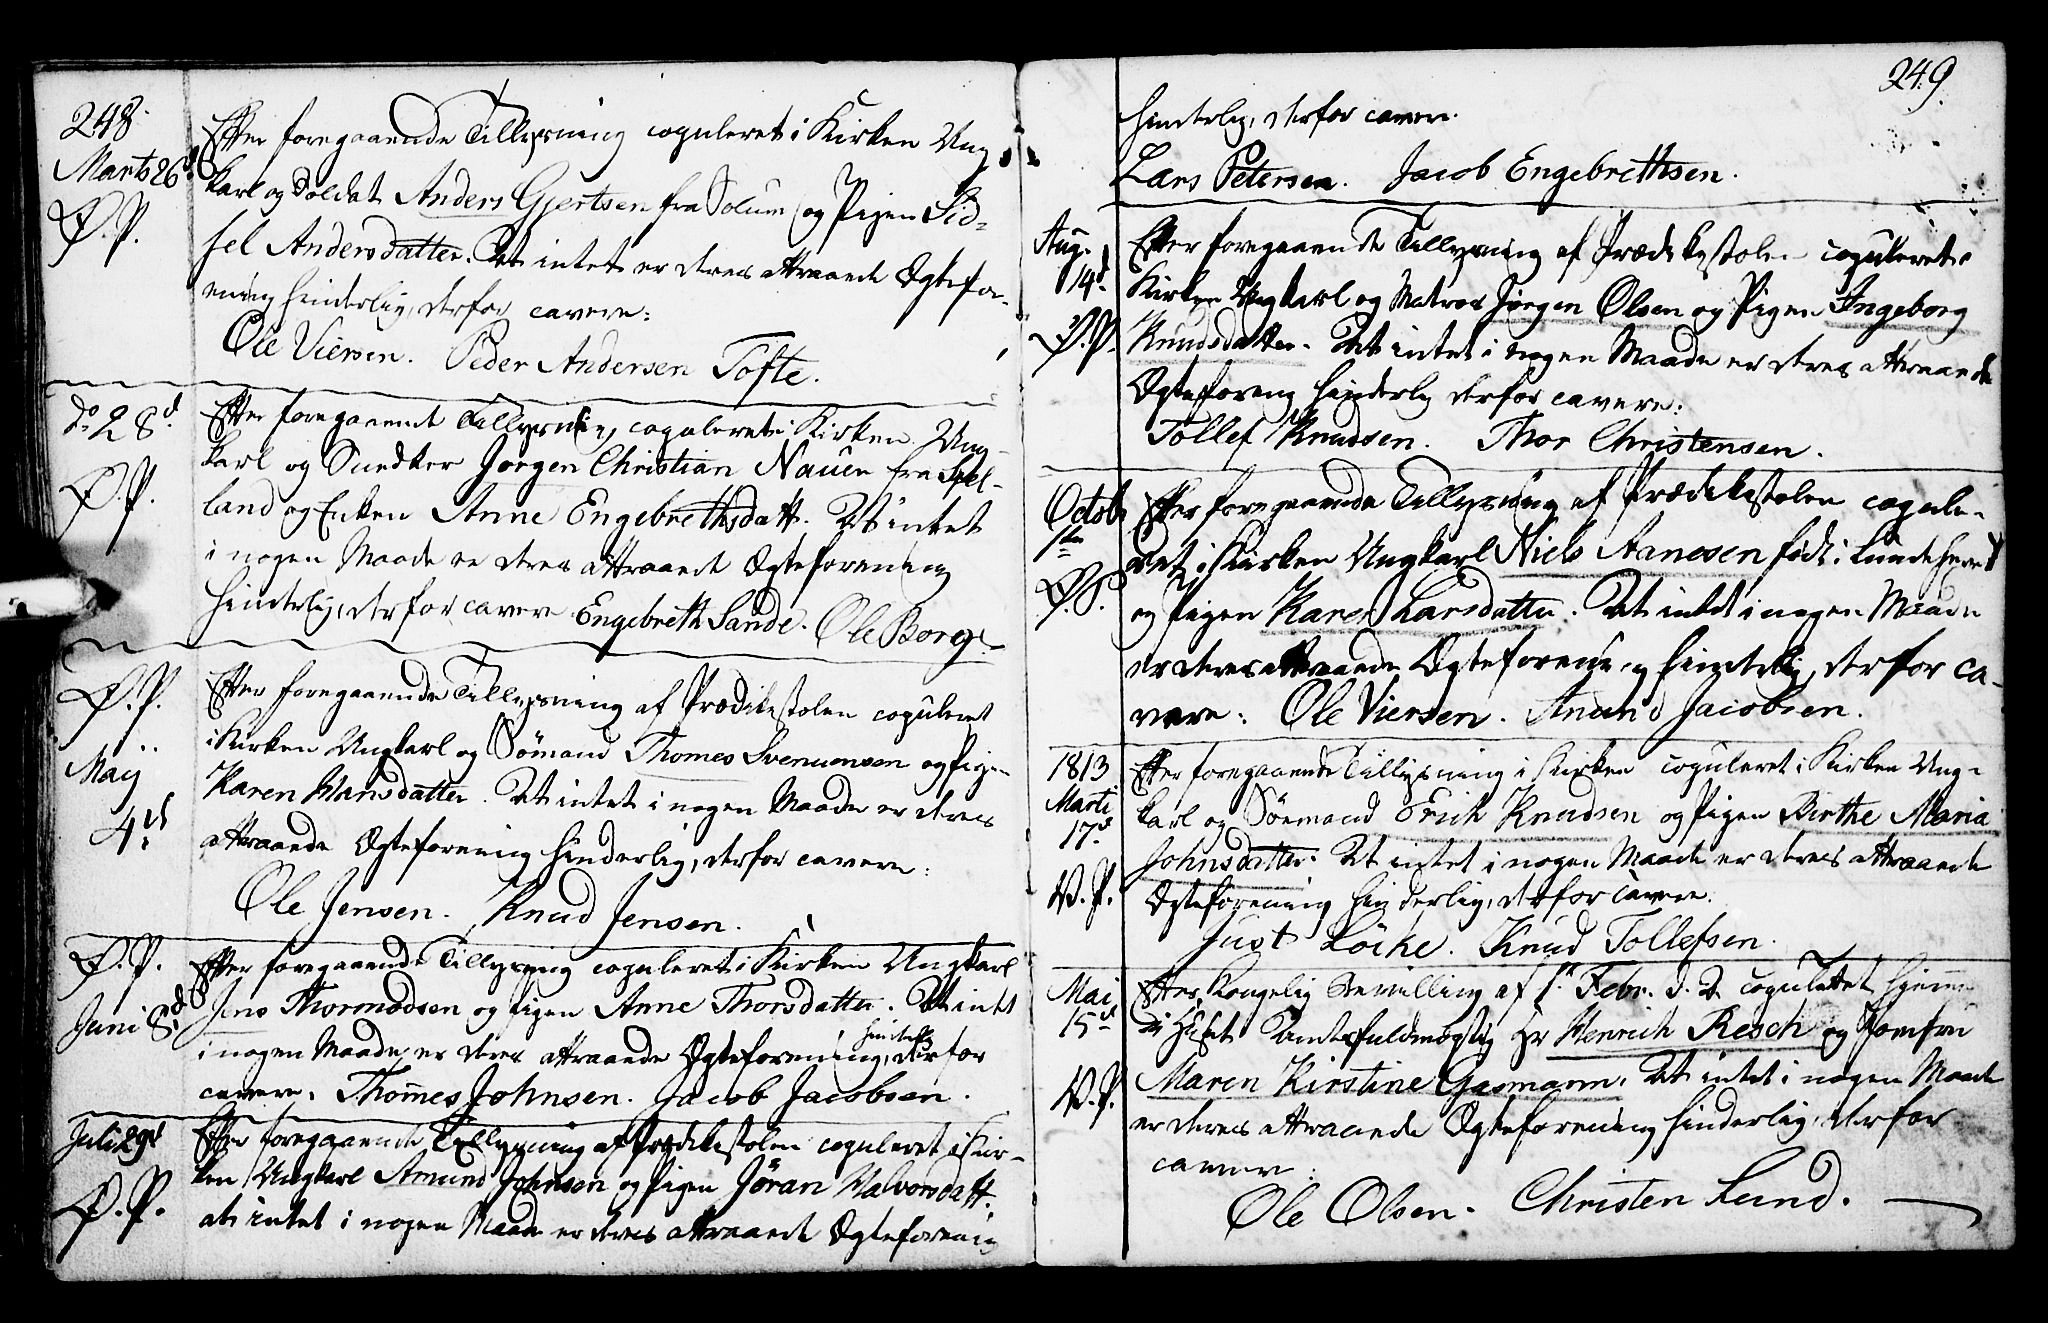 248.
Marts 26d
P. P.
Efter foregaaende Tillysning copuleret i Kirken Ung-
karl og Soldat Anders Gjertsen fra Solum og Pigen Sid-
sel Andersdatter. At intet er deres attraaede Ægtefor-
ening hinderlig, derfor cavere:
Ole Viersen. Peder Andersen Tofte.
Do 28d.
P. P.
Efter foregaaende Tillysning, copuleret i Kirken Ung-
karl og Snedker Jørgen Christian Nauen fra
land og Enken Anne Engebrethsdatt. At intet
i nogen Maade er deres attraaede Ægteforening
hinderlig, derfor cavere Engebreth Sande. Ole Borge
P. P.
Maij
4d.
Efter foregaaende Tillysning af Prædikestolen copuleret
i Kirken Ungkarl og Sömand Thomes Svenumsen og Pigen
Karen Hansdatter. At intet i nogen Maade er deres
attraaede Ægteforening hinderlig, derfor cavere:
Ole Jensen. Knud Jensen.
P. P.
Juni 8d
Efter foregaaende Tillysning copuleret i Kirken Ungkarl
Jens Thormodsen og Pigen Anne Thorsdatter. At intet
i nogen Maade er deres attraaede Ægteforening, hinderlig derfor
cavere. Thomes Johnsen. Jacob Jacobsen.
Juli 29d
P. P.
Efter foregaaende Tillysning af Prædikestolen copuleret i Kir-
ken Ungkarl Amund Johnsen og Pigen Jöran Halvorsdatt.
at intet i nogen Maade er deres attraaede Ægteforening
249.
hinderlig, derfor cavere.
Lars Petersen. Jacob Engebrethsen.
Aug.
14d.
P. P.
Efter foregaaende Tillysning af Prædikestolen copuleret i
Kirken Ungkarl og Matros Jørgen Olsen og Pigen Ingeborg
Knudsdatter. At intet i nogen Maade er deres attraaede
Ægteforening hinderlig derfor cavere:
Tollef Knudsen. Thor Christensen.
Octob
1te
P. P.
Efter foregaaende Tillysning af Prædikestolen copule-
ret i Kirken Ungkarl Niels Aanesen født i Lundeherret
og Pigen Karen Larsdatter. At intet i nogen Maade
er deres attraaede Ægteforening hinderlig, derfor ca-
vere: Ole Viersen. Anund Jacobsen.
1813
Marti
17d.
P. P.
Efter foregaaende Tillysning i Kirken copuleret i Kirken Ung-
karl og Sömand Erich Knudsen og Pigen Birthe Maria
Johnsdatter. At intet i nogen Maade er deres attraaede
Ægteforening hinderlig, derfor cavere.
Just Löcke. Knud Tollefsen.
Mai
15d
P. P.
Efter Kongelig Bevilling af Febr. copuleret hjemme
i Huset Amtsfuldmægtig Hr Henrich Resch og Jomfru
Maren Kirstine Gasmann. At intet i nogen Maade
er deres attraaede Ægteforening hinderlig, derfor
cavere:
Ole Olsen. Christen Lund.